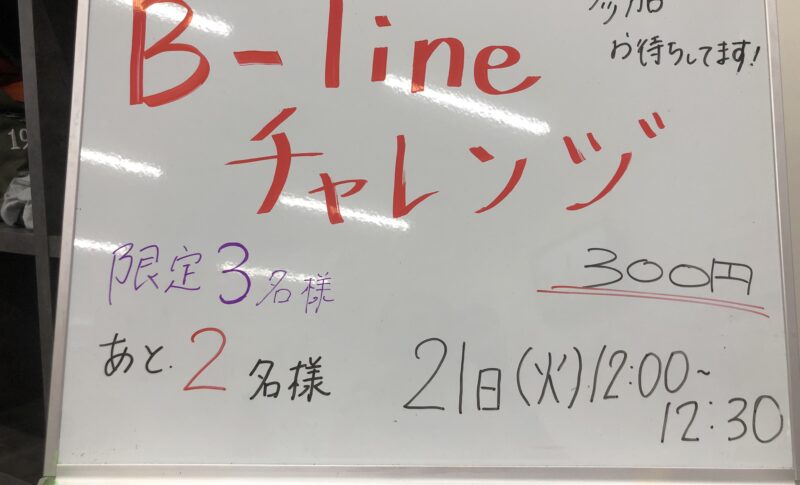 B-line
参加
お待ちしてます!
チャレンジ
限定3名様
300円
あと.2名様
21日(火)12:00~
12:30
19